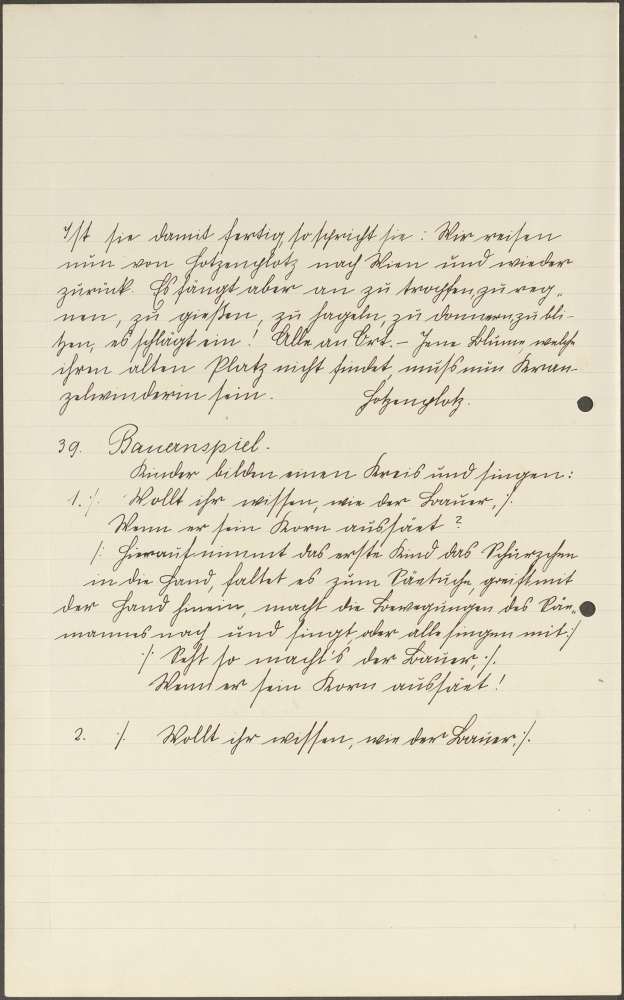 Ist sie damit fertig, so spricht sie: Wir reisen
nun von Hotzenplotz nach Wien und wieder
zurück. Es fängt aber an zu tropfen, zu reg„
nen, zu gießen, zu hageln, zu donnern, zu bli-
tzen, es schlägt ein! Alle an Ort. – Jene Blume, welche
ihren alten Platz nicht findet, muß nun Kran-
zelwinderin sein. Hotzenplotz.
39. Bauernspiel.
Kinder bilden einen Kreis und singen:
1. :/: Wollt ihr wissen, wie der Bauer, :/:
Wenn er sein Korn aussäet?
/: Hierauf nimmt das erste Kind das Schürzchen
in die Hand, faltet es zum Säetuche, greift mit
der Hand hinein, macht die Bewegungen des Säe„
mannes nach und singt oder alle singen mit :/
:/: Seht so macht's der Bauer, :/:
Wenn er sein Korn aussäet!
2. :/: Wollt ihr wissen, wie der Bauer, :/: